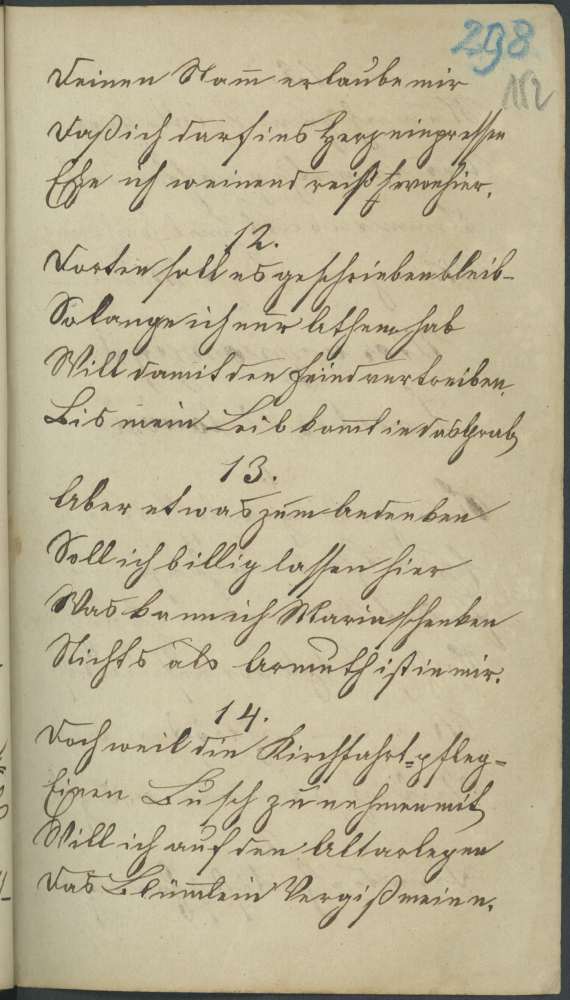 298
112
Deinen Nam̄ erlaube mir
Daß ich darf ins Herz einpressen
Ehe ich weinend reiß von hier.
12.
Dorten soll es geschrieben bleib-
So lange ich nur Athem hab
Will damit den Feind vertreiben,
Bis mein Leib kom̄t in das Grab
13.
Aber etwas zum Andenken
Soll ich billig lassen hier
Was kann ich Maria schenken
Nichts als Armuth ist in mir.
14.
Doch weil die Kirchfahrt-pfleg-
Einen Busch zu nehmen mit
Will ich auf den Altar legen
Das Blüm̄lein Vergißmein n.